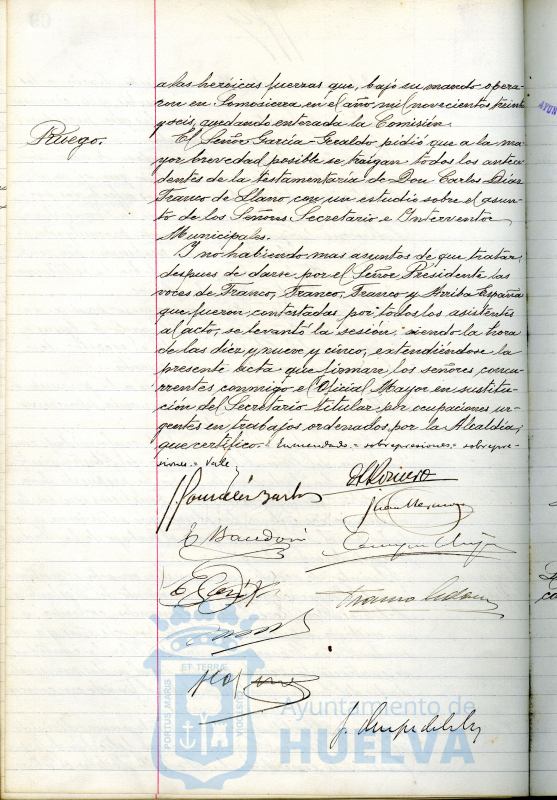 a las heróicas fuerzas que, bajo su mando opera-
ron en Somosierra en el año mil novecientos treinta
y seis, quedando enterada la Comisión.
Ruego.
El Señor García-Geraldo pidió que a la ma-
yor brevedad posible se traigan todos los antece-
dentes de la testamentaría de Don Carlos Díaz
Franco de Llano, con un estudio sobre el asun-
to de los Señores Secretario e Interventor
Municipales.
Y no habiendo mas asuntos de que tratar,
despues de darse por el Señor Presidente las
voces de Franco, Franco, Franco y Arriba España
que fueron contestadas por todos los asistentes
al acto, se levantó la sesión, siendo la hora
de las diez y nueve y cinco, extendiéndose la
presente acta que firman los señores concu-
rrentes conmigo el Oficial Mayor en sustitu-
ción del Secretario titular por ocupaciones ur-
gentes en trabajos ordenados por la Alcaldía,
que certifico. = Enmendado = sobre presiones = sobre pre-
siones = Vale
ET TERRÆ
PORTUS MARIS
CUSTODIA
Ayuntamiento de
HUELVA